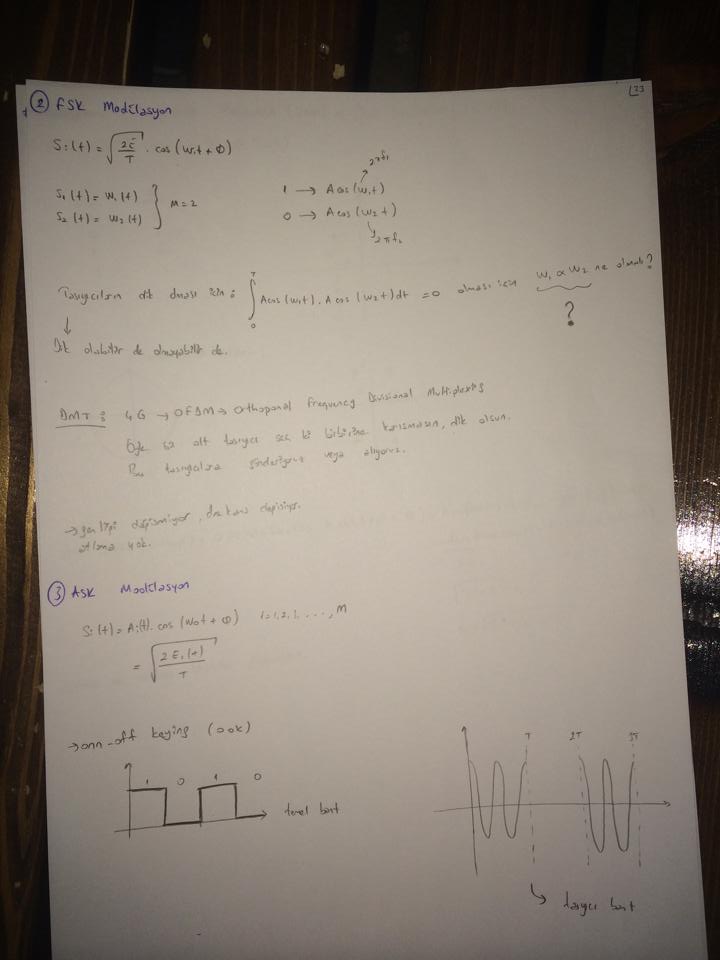 ② FSK Modülasyon
Si(t) = √(2E/T) . cos(wit + Φ)
S1(t) = w1(t)
S2(t) = w2(t)
} M=2
2πf1
1 → A cos(w1t)
0 → A cos(w2t)
2πf2
Taşıyıcıların dik olması için : ∫₀ᵀ A cos(w1t) . A cos(w2t) dt = 0 olması için w1 ve w2 ne olmalı?
?
↓
Dik olabilir de olmayabilir de.
DMT : 4G → OFDM → Orthogonal Frequency Divisional Multiplexing
Öyle bir alt taşıyıcı seç ki birbirine karışmasın, dik olsun.
Bu taşıyıcılara gönderiyoruz veya alıyoruz.
→ genliği değişmiyor, frekans değişiyor.
atlama yok.
③ ASK Modülasyon
Si(t) = Ai(t). cos(w0t + Φ) i=1,2, ...., M
= √(2Ei(t)/T)
→ onn-off keying (ook)
1 0 1 0
temel bant
T 2T 3T
↳ taşıyıcı bant